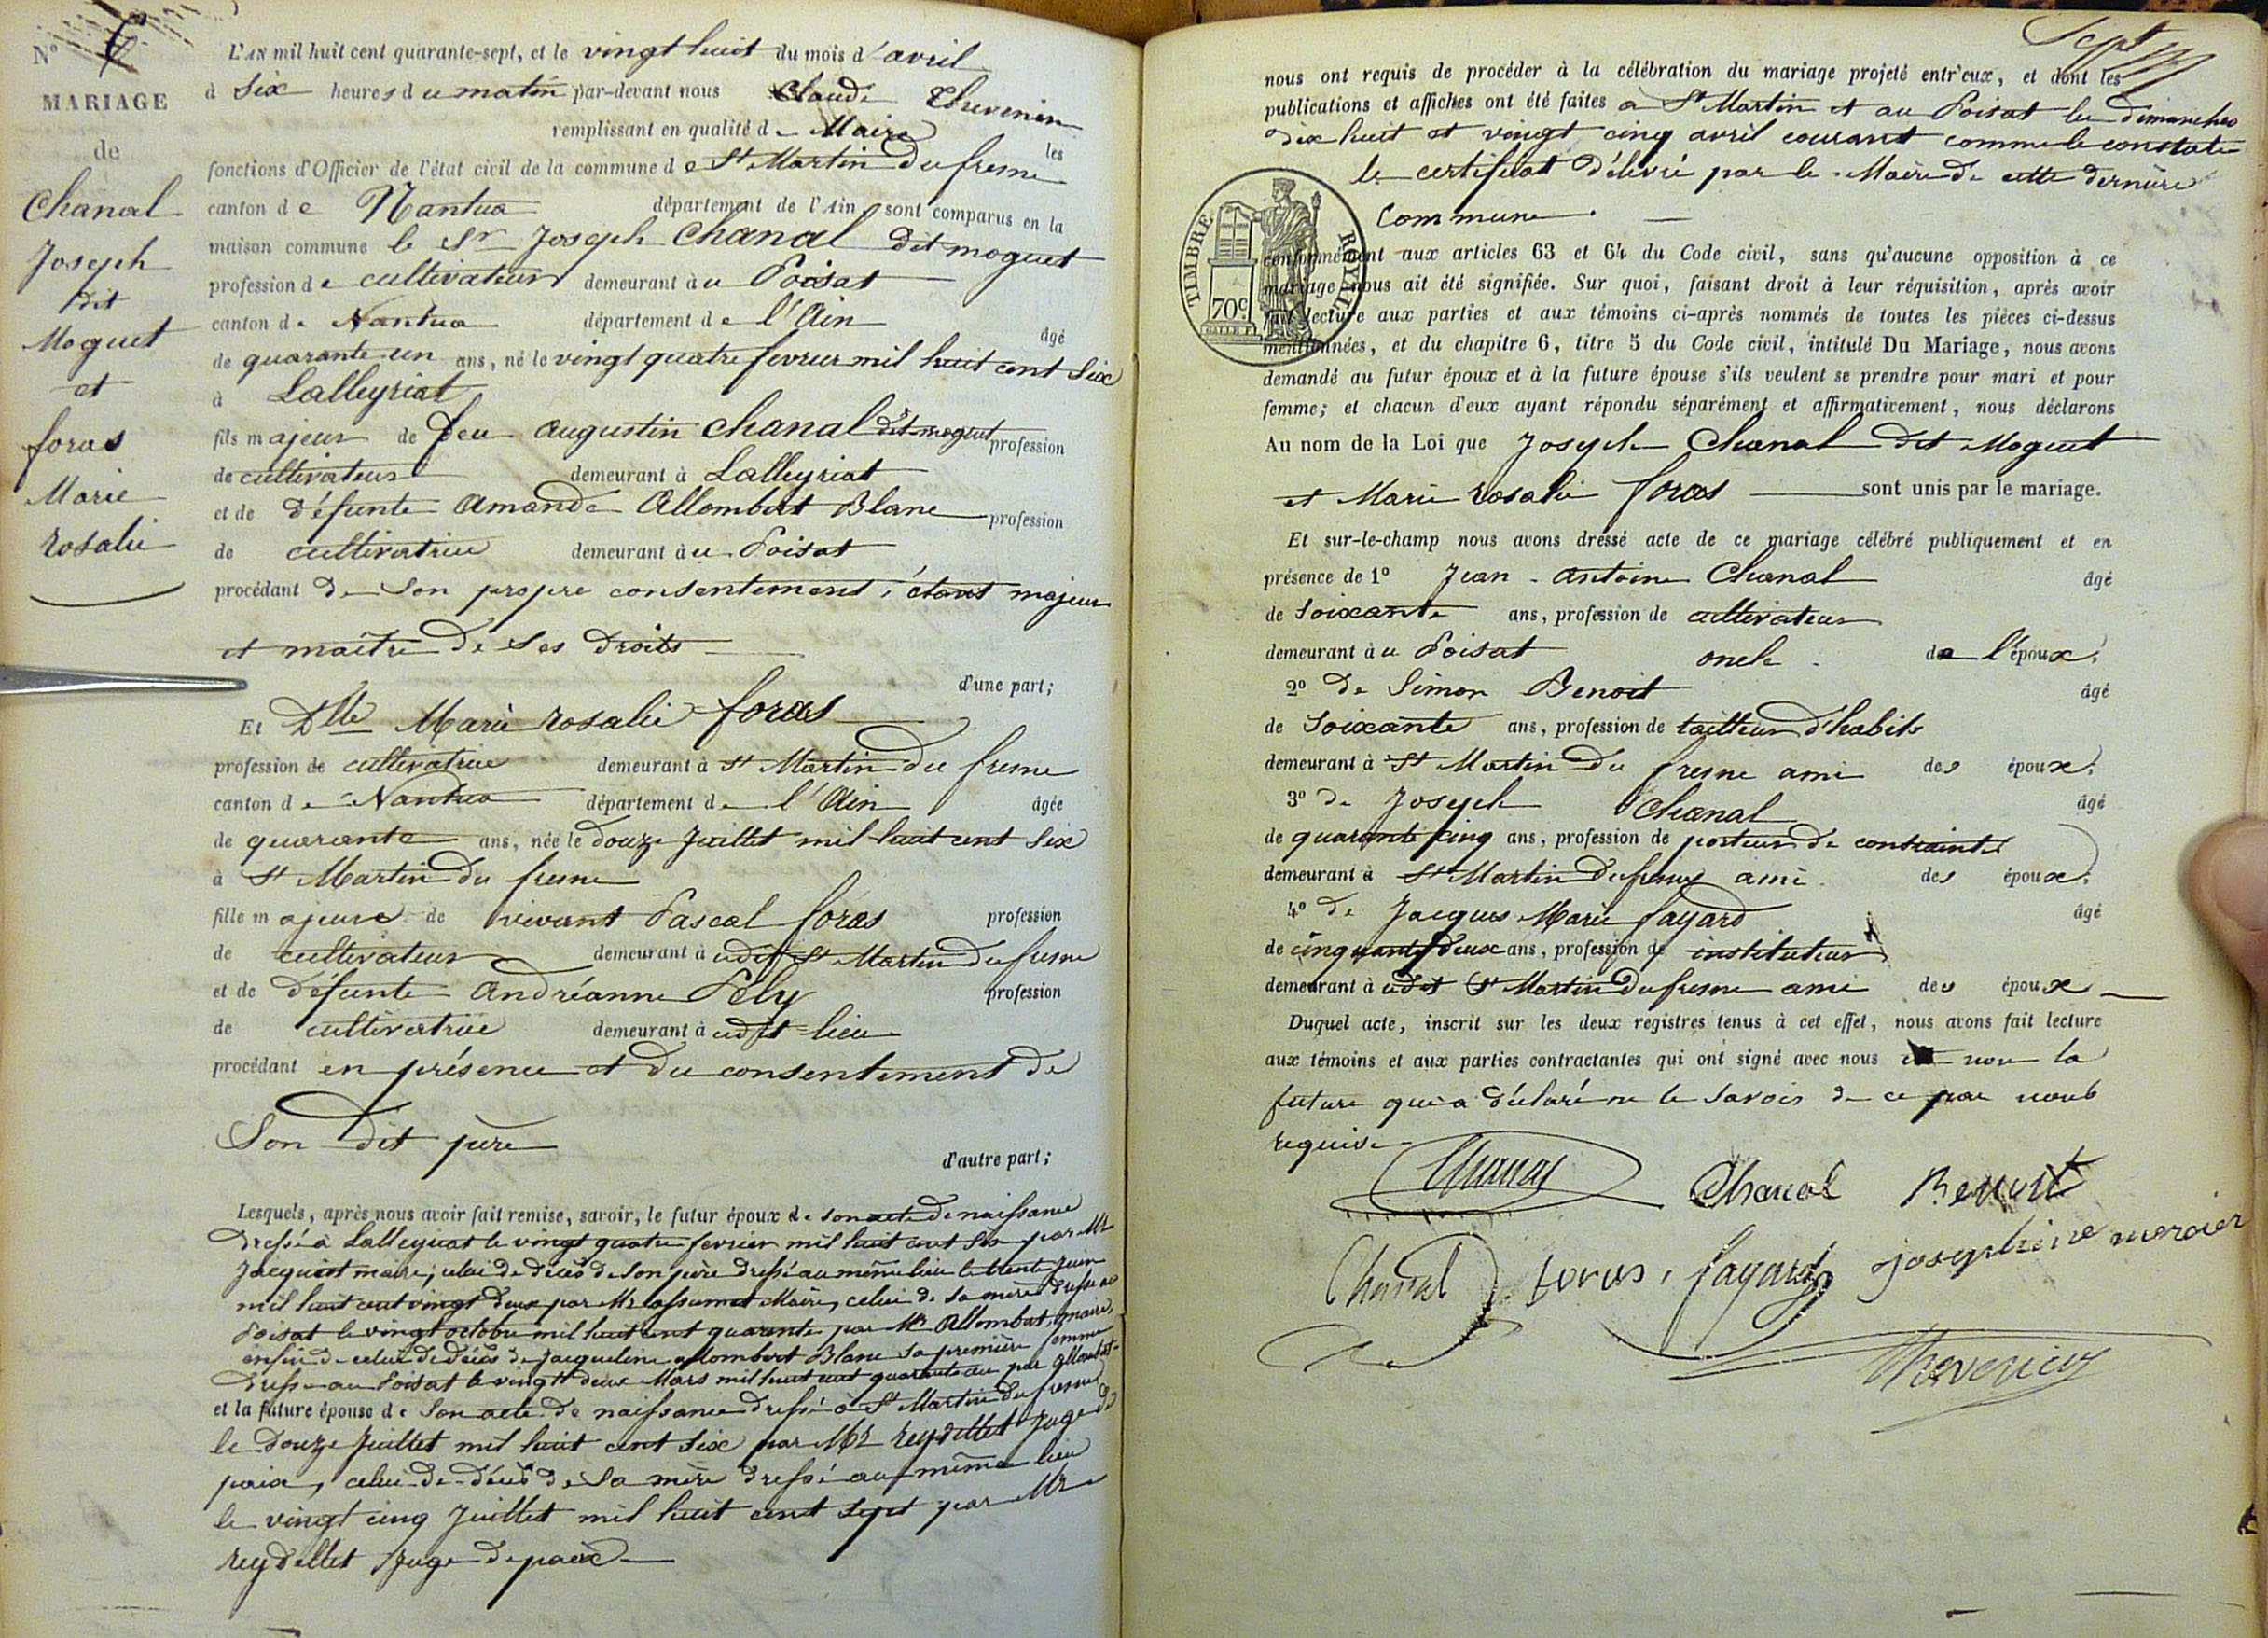 N° 6
MARIAGE
de
Chanal
Joseph
dit
Moguet
et
foras
Marie
rosalie
L'AN mil huit cent quarante-sept, et le vingt huit du mois d'avril
à six heures du matin par-devant nous Claude Thevenin
remplissant en qualité de Maire les
fonctions d'Officier de l'état civil de la commune de St Martin du fresne
canton de Nantua département de l'Ain sont comparus en la
maison commune le Sr Joseph Chanal dit moguet
profession de cultivateur demeurant au Poisat
canton de Nantua département de l'Ain âgé
de quarante un ans, né le vingt quatre fevrier mil huit cent six
à Lalleyriat
fils majeur de feu augustin chanal dit moguet profession
de cultivateur demeurant à Lalleyriat
et de défunte Amande Allombert Blanc profession
de cultivatrice demeurant au Poisat
procédant de son propre consentement, étant majeur
et maître de ses droits
d'une part;
Et Dlle Marie rosalie foras
profession de cultivatrice demeurant à St Martin du fresne
canton de Nantua département de l'Ain âgée
de quarante ans, née le douze Juillet mil huit cent six
à St Martin du fresne
fille majeure de vivant Pascal foras profession
de cultivateur demeurant à udit St Martin du fresne
et de défunte Andréanne Pély profession
de cultivatrice demeurant à udit lieu
procédant en présence et du consentement de
Son dit père
d'autre part;
Lesquels, après nous avoir fait remise, savoir, le futur époux de son acte de naissance
dressé à Lalleyriat le vingt quatre fevrier mil huit cent six par Mr
Jacquiot maire, celui de décès de son père dressé au même lieu le trente juin
mil huit cent vingt deux par Mr Maire, celui de sa mère dressé au
Poisat le vingt octobre mil huit cent quarante par Mr Allombert, maire,
enfin de celui de décès de Jacqueline allombert Blanc sa première femme
dressé au Poisat le vingt deux Mars mil huit cent quarante un par allombert
et la future épouse de son acte de naissance dressé à St Martin du fresne
le douze Juillet mil huit cent six par Mr reydellet juge de
paix, celui de décès de sa mère dressé au même lieu
le vingt cinq Juillet mil huit cent sept par Mr
reydellet juge de paix
Sept
nous ont requis de procéder à la célébration du mariage projeté entr'eux, et dont les
publications et affiches ont été faites à St Martin et au Poisat les dimanches
dix huit et vingt cinq avril courant comme le constate
le certificat délivré par le Maire de cette dernière
commune.
TIMBRE ROYAL
70c.
conformément aux articles 63 et 64 du Code civil, sans qu'aucune opposition à ce
mariage nous ait été signifiée. Sur quoi, faisant droit à leur réquisition, après avoir
fait lecture aux parties et aux témoins ci-après nommés de toutes les pièces ci-dessus
mentionnées, et du chapitre 6, titre 5 du Code civil, intitulé Du Mariage, nous avons
demandé au futur époux et à la future épouse s'ils veulent se prendre pour mari et pour
femme; et chacun d'eux ayant répondu séparément et affirmativement, nous déclarons
Au nom de la Loi que Joseph Chanal dit Moguet
et Marie rosalie foras sont unis par le mariage.
Et sur-le-champ nous avons dressé acte de ce mariage célébré publiquement et en
présence de 1° Jean-Antoine Chanal âgé
de soixante ans, profession de cultivateur
demeurant au Poisat oncle de l'époux;
2° de Simon Benoit âgé
de soixante ans, profession de tailleur d'habits
demeurant à St Martin du fresne ami des époux;
3° de Joseph Chanal âgé
de quarante cinq ans, profession de porteur de contraintes
demeurant à St Martin du fresne ami des époux;
4° de Jacques Marie fayard âgé
de cinquante deux ans, profession de instituteur
demeurant à udit St Martin du fresne ami des époux
Duquel acte, inscrit sur les deux registres tenus à cet effet, nous avons fait lecture
aux témoins et aux parties contractantes qui ont signé avec nous non la
future qui a déclaré ne le savoir de ce par nous
requise
Chanal Chanal Benoit
Chanal foras, fayard josephine mercier
Thevenin